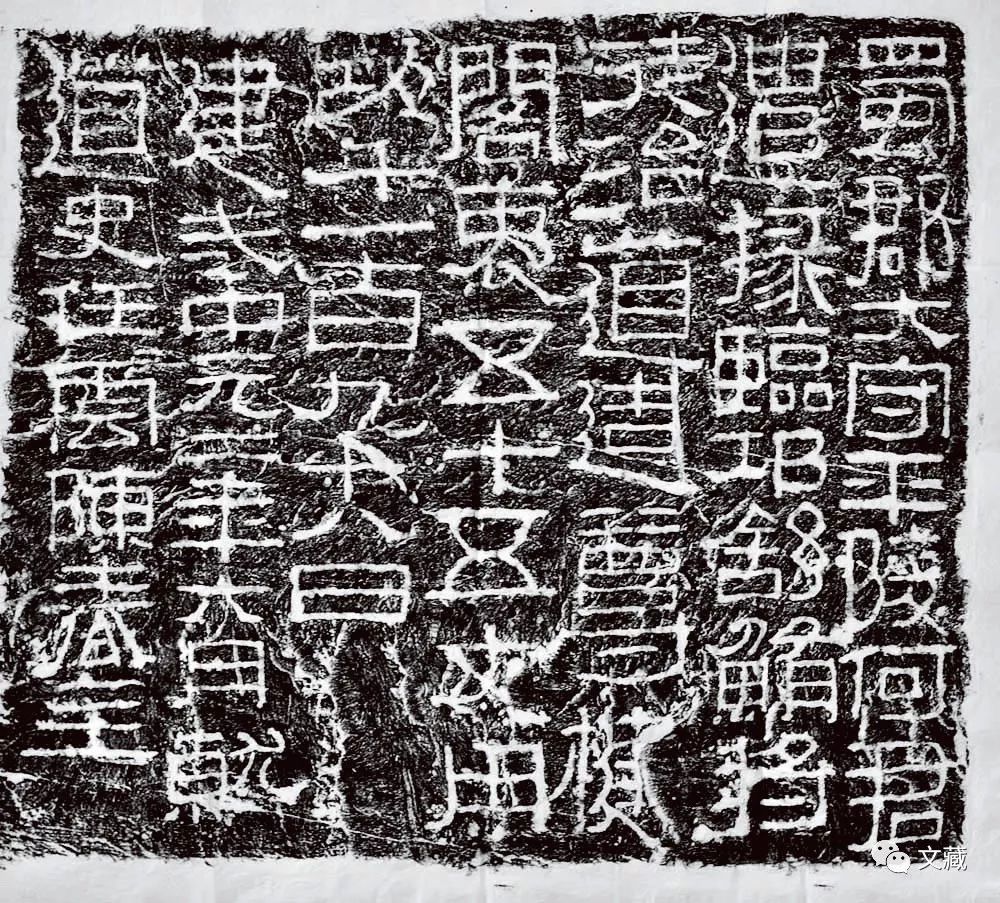 蜀郡大守平陵何君
遣掾臨邛舒鮪將
徒治道造尊楗
閣袤五十五丈用
功千一百九十八日
建武中元二年六月就
道史任雲陳春主
文藏